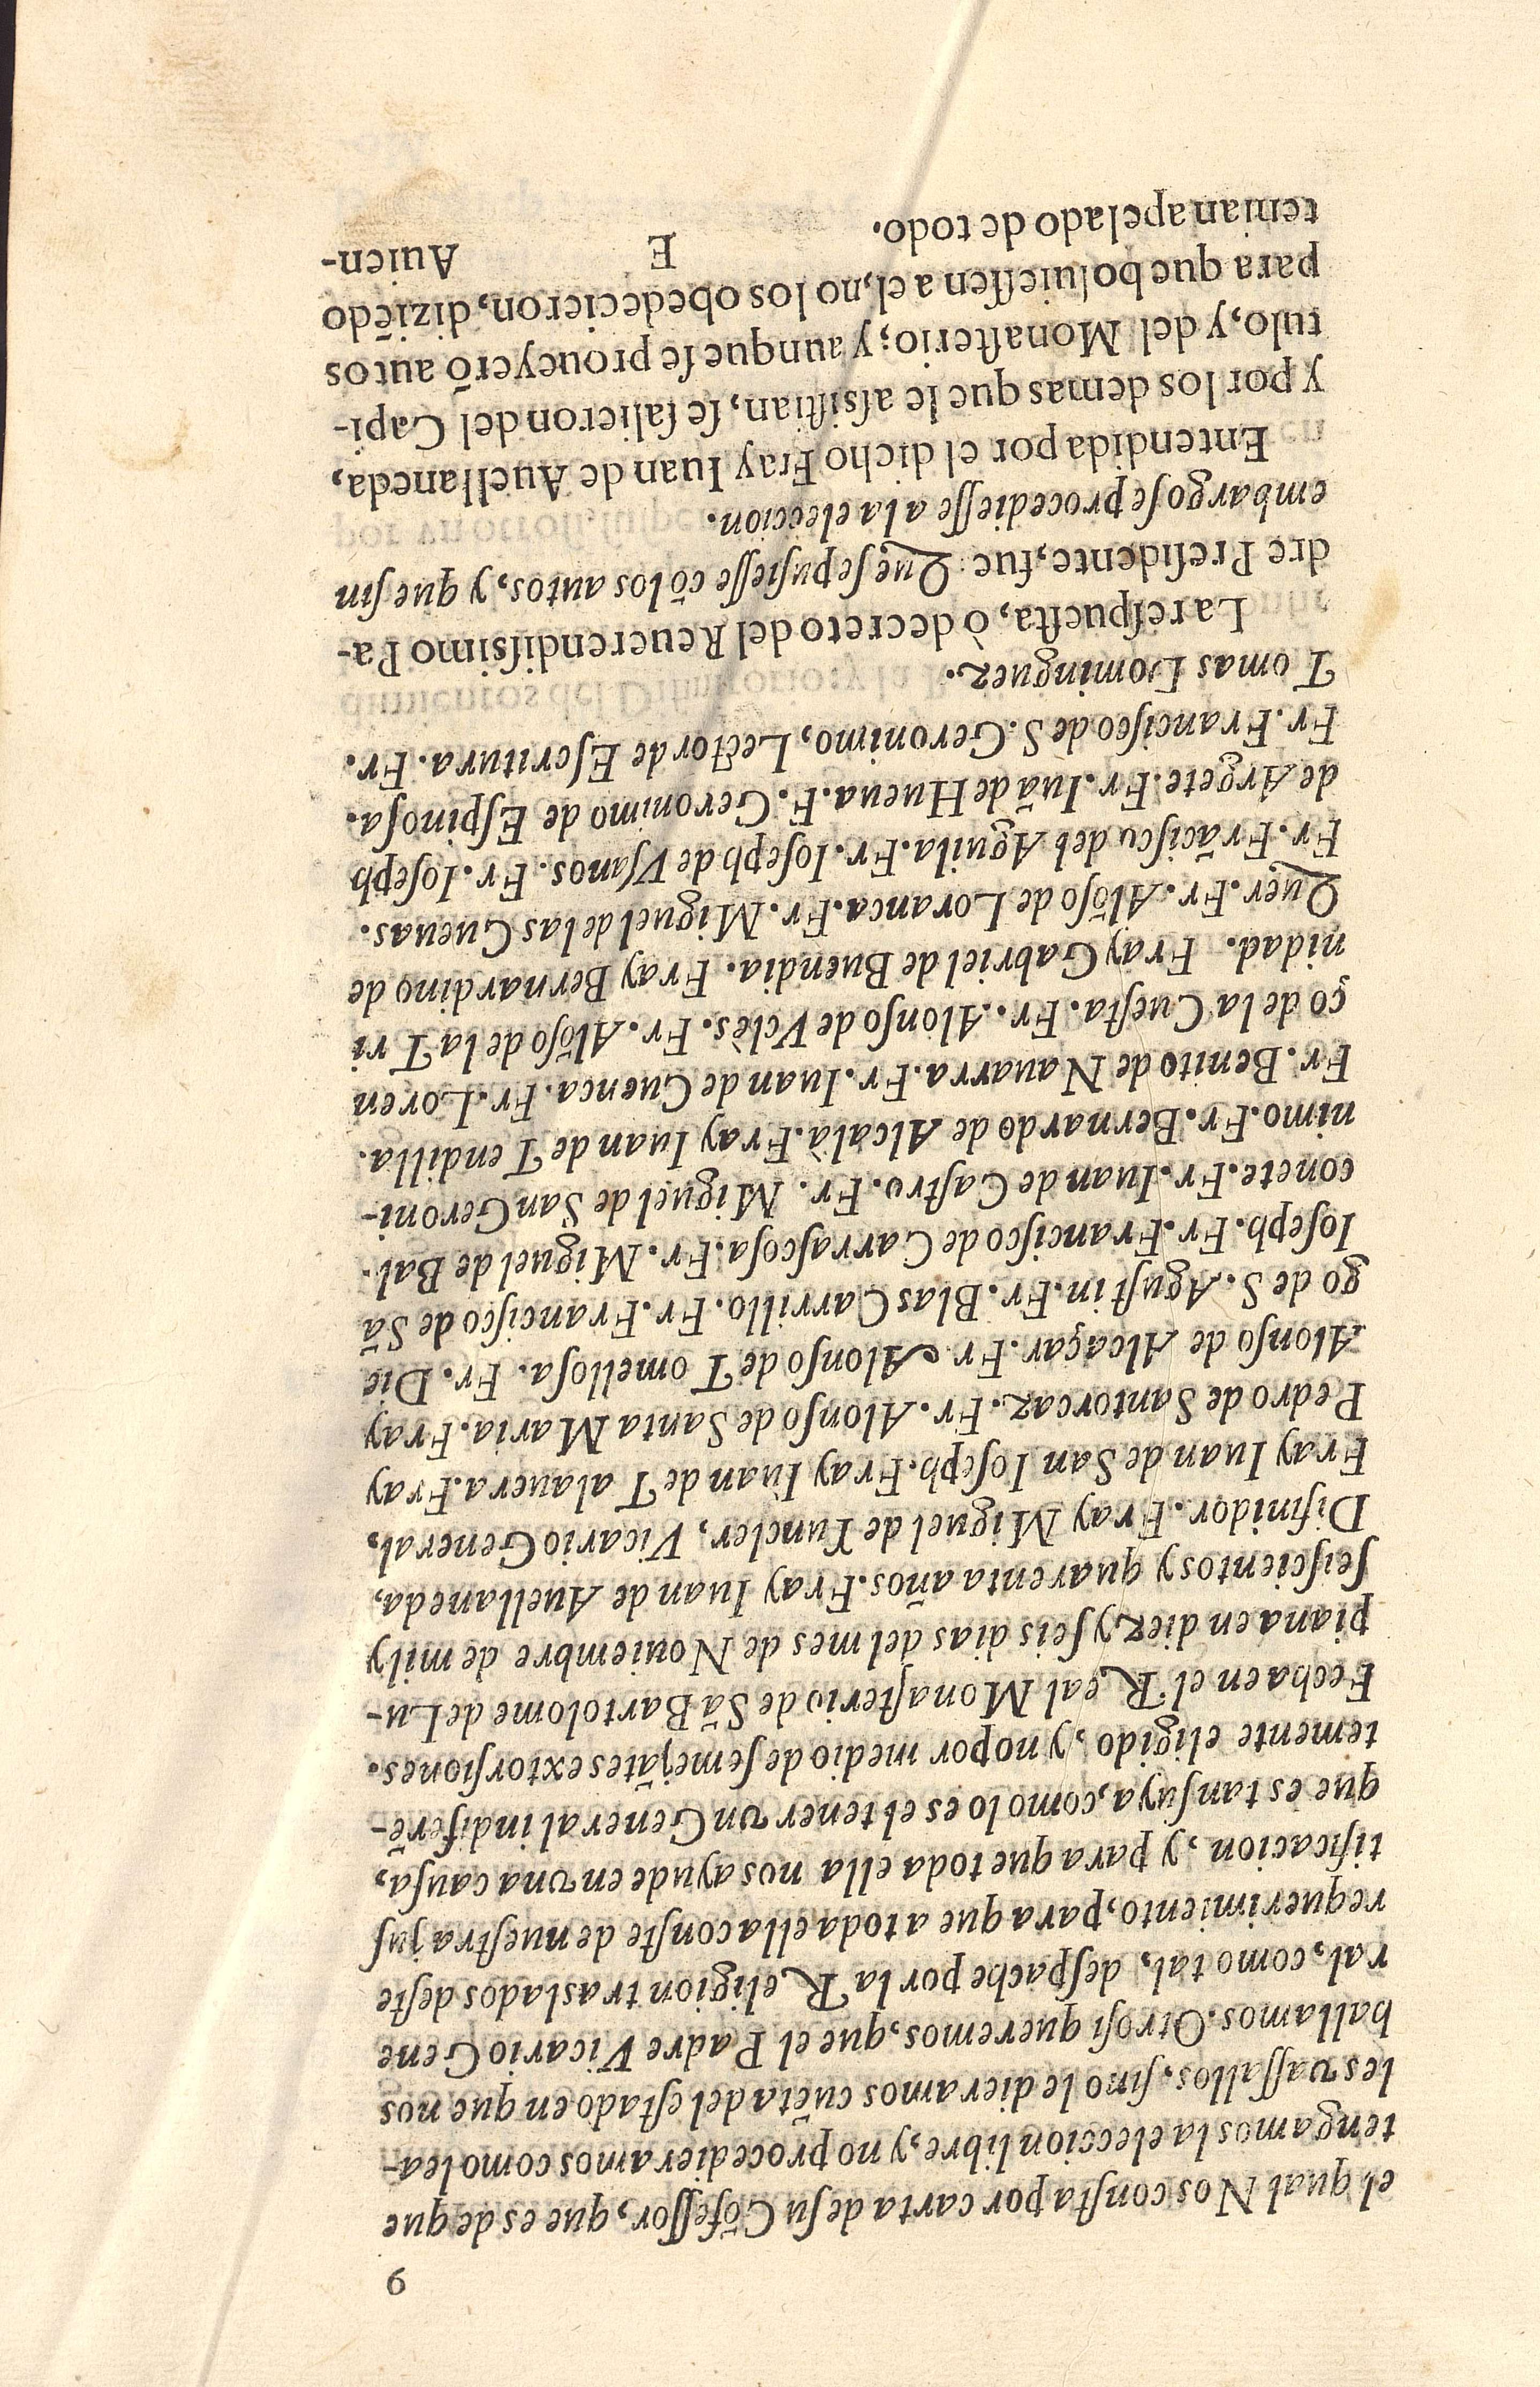 9
el qual Nos conſta por carta de ſu Cõfeſſor, que es de que
tengamos la eleccion libre, y no procedieramos como lea-
les vaſſallos, ſino le dieramos cuẽta del eſtado en que nos
hallamos. Otroſi queremos, que el Padre Vicario Gene
ral, como tal, deſpache por la Religion traslados deſte
requerimiento, para que a toda ella conſte de nueſtra juſ
tificacion, y para que toda ella nos ayude en vna cauſa,
que es tan ſuya, como lo es el tener vn General indiferẽ-
temente eligido, y no por medio de ſemejãtes extorſiones.
Fecha en el Real Monaſterio de Sã Bartolome de Lu-
piana en diez y ſeis dias del mes de Nouiembre de mil y
ſeiſcientos y quarenta años. Fray Iuan de Auellaneda,
Difinidor. Fray Miguel de Yuncler, Vicario General,
Fray Iuan de San Ioſeph. Fray Iuan de Talauera. Fray
Pedro de Santorcaz. Fr. Alonſo de Santa Maria. Fray
Alonſo de Alcaçar. Fr. Alonſo de Tomelloſa. Fr. Die
go de S. Aguſtin. Fr. Blas Carrillo. Fr. Franciſco de Sã
Ioſeph. Fr. Franciſco de Carraſcoſa. Fr. Miguel de Bal-
conete. Fr. Iuan de Caſtro. Fr. Miguel de San Geroni-
nimo. Fr. Bernardo de Alcalà. Fray Iuan de Tendilla.
Fr. Benito de Nauarra. Fr. Iuan de Cuenca. Fr. Loren
ço de la Cueſta. Fr. Alonſo de Vclès. Fr. Alõſo de la Tri
nidad. Fray Gabriel de Buendia. Fray Bernardino de
Quer. Fr. Alõſo de Loranca. Fr. Miguel de las Cueuas.
Fr. Frãciſco del Aguila. Fr. Ioſeph de Vſanos. Fr. Ioſeph
de Argete. Fr. Iuã de Hueua. F. Geronimo de Eſpinoſa.
Fr. Franciſco de S. Geronimo, Lector de Eſcritura. Fr.
Tomas Dominguez.
La reſpueſta, ò decreto del Reuerendiſsimo Pa-
dre Preſidente, fue: Que ſe puſieſſe cõ los autos, y que ſin
embargo ſe procedieſſe a la eleccion.
Entendida por el dicho Fray Iuan de Auellaneda,
y por los demas que le aſsiſtian, ſe ſalieron del Capi-
tulo, y del Monaſterio; y aunque ſe proueyerõ autos
para que boluieſſen a el, no los obedecieron, diziẽdo
tenian apelado de todo.
E Auien-